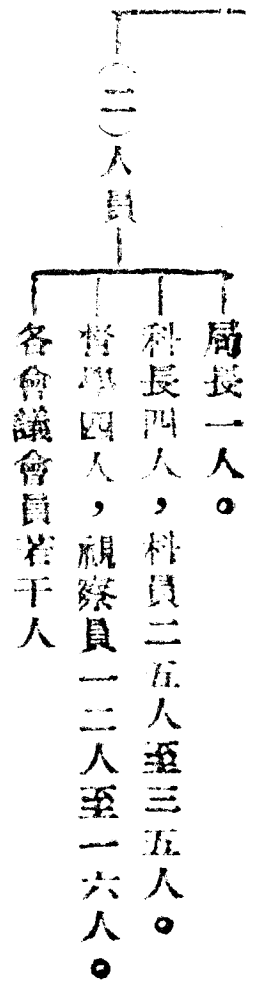 (二)人員
局長一人。
科長四人，科員二五人至三五人。
督學四人，視察員一二人至一六人。
各會議會員若干人